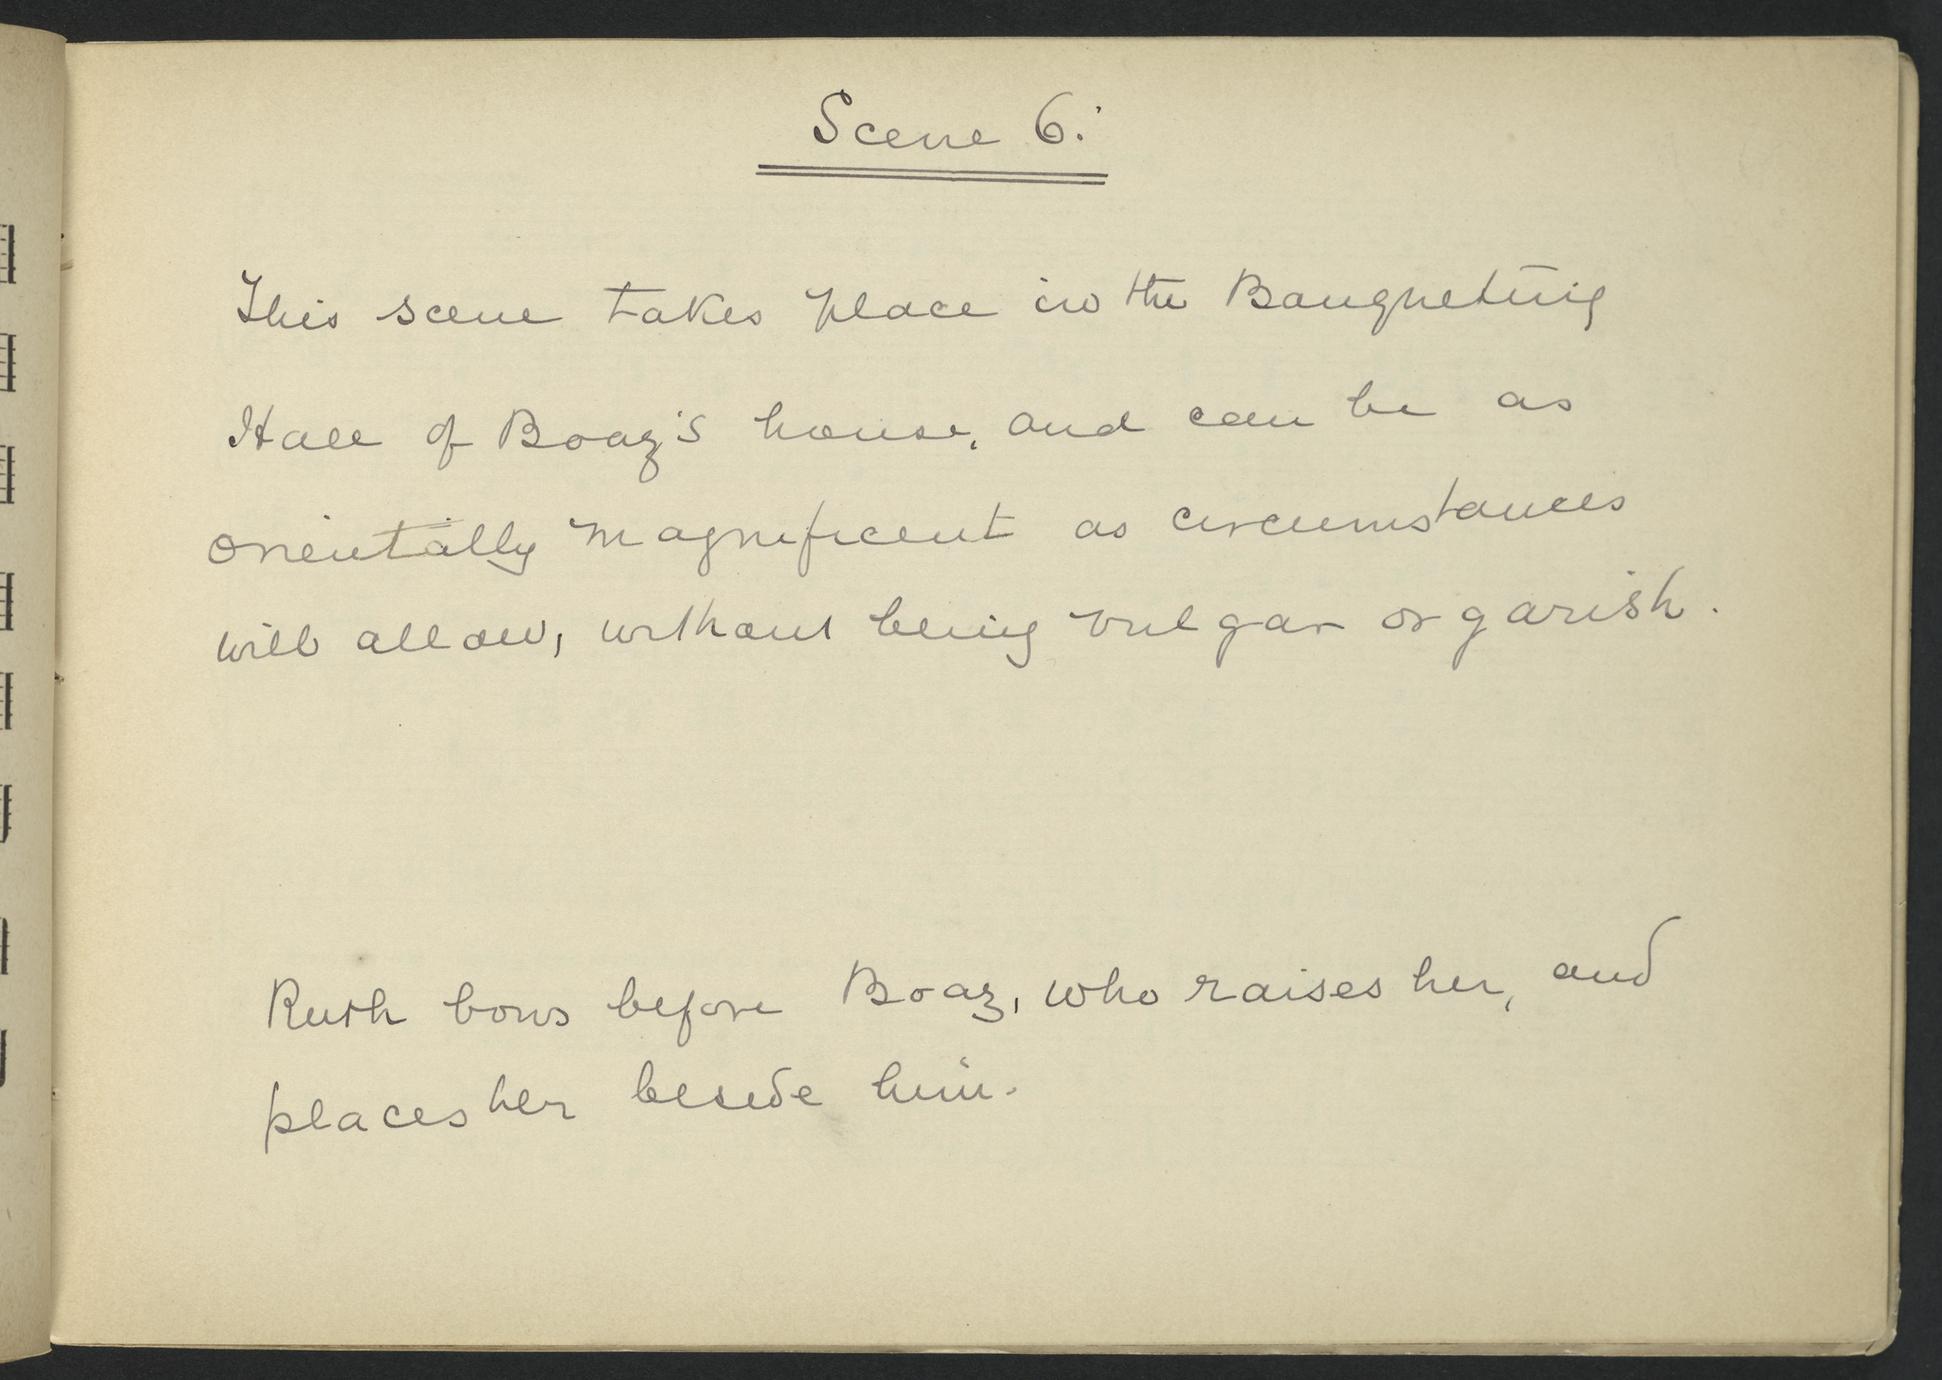 Scene 6.
This scene takes place in the Banqueting
Hall of Boaz's house, and can be as
orientally magnificent as circumstances
will allow, without being vulgar or garish.
Ruth bows before Boaz, who raises her, and
places her beside him.